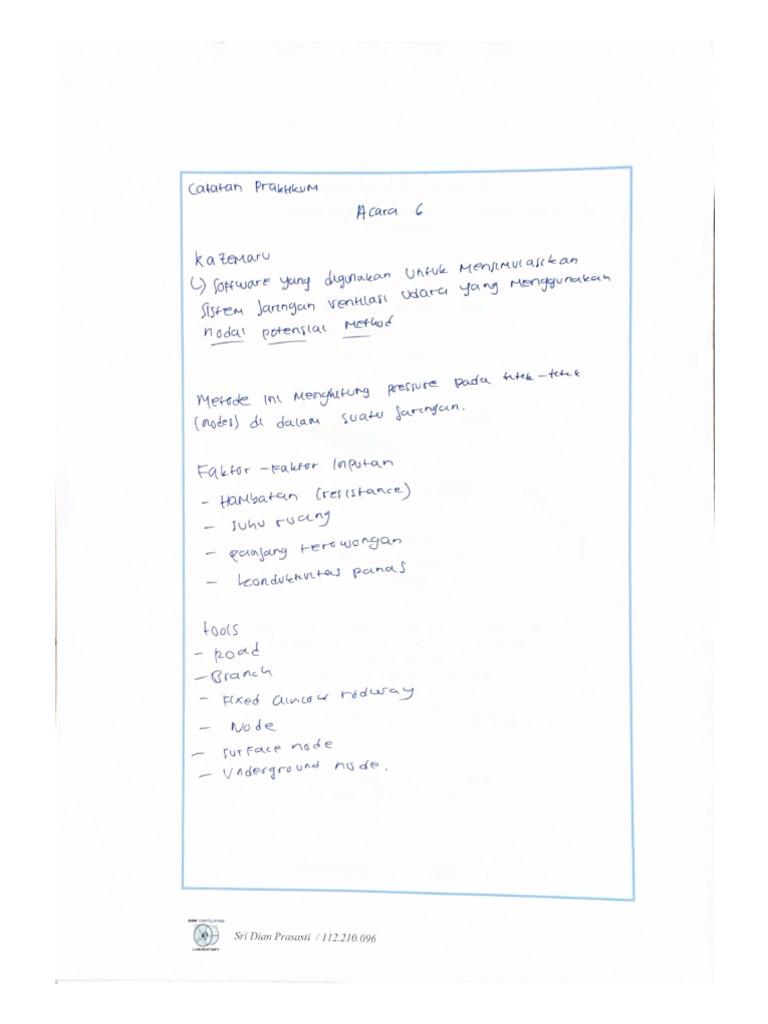 Catatan Praktikum
Acara 6
Kazemaru
↳ Software yang digunakan untuk mensimulasikan
sistem jaringan ventilasi udara yang menggunakan
nodal potensial Method
Metode ini menghitung pressure pada titik-titik
(nodes) di dalam suatu jaringan.
Faktor-faktor inputan
- Hambatan (resistance)
- suhu ruang
- panjang terowongan
- konduktivitas panas
tools
- Road
- Branch
- Fixed rodway
- Node
- surface node
- Underground node.
LABORATORY
Sri Dian Prasasti / 112.210.096